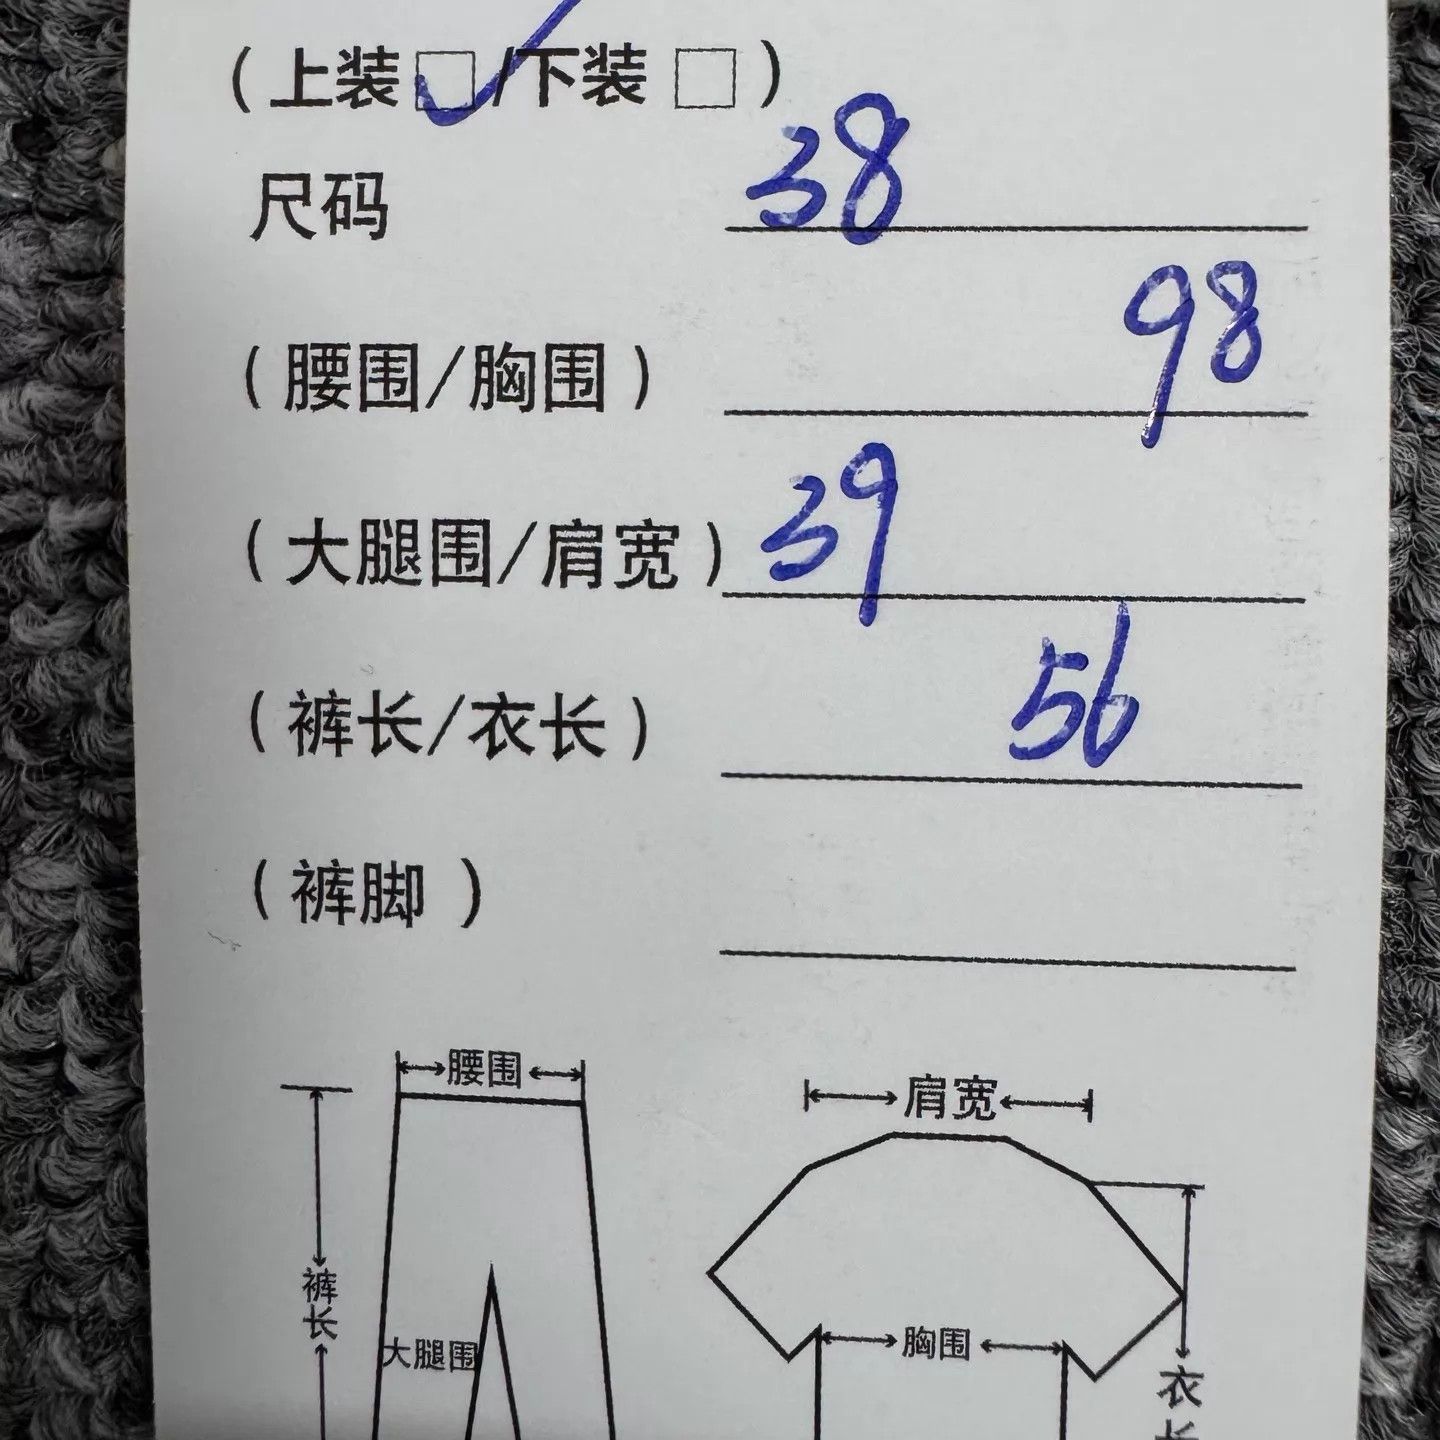 (上装□✓/下装□)
尺码 38
(腰围/胸围) 98
(大腿围/肩宽) 39
(裤长/衣长) 56
(裤脚 )
腰围
肩宽
裤长
大腿围
胸围
衣长